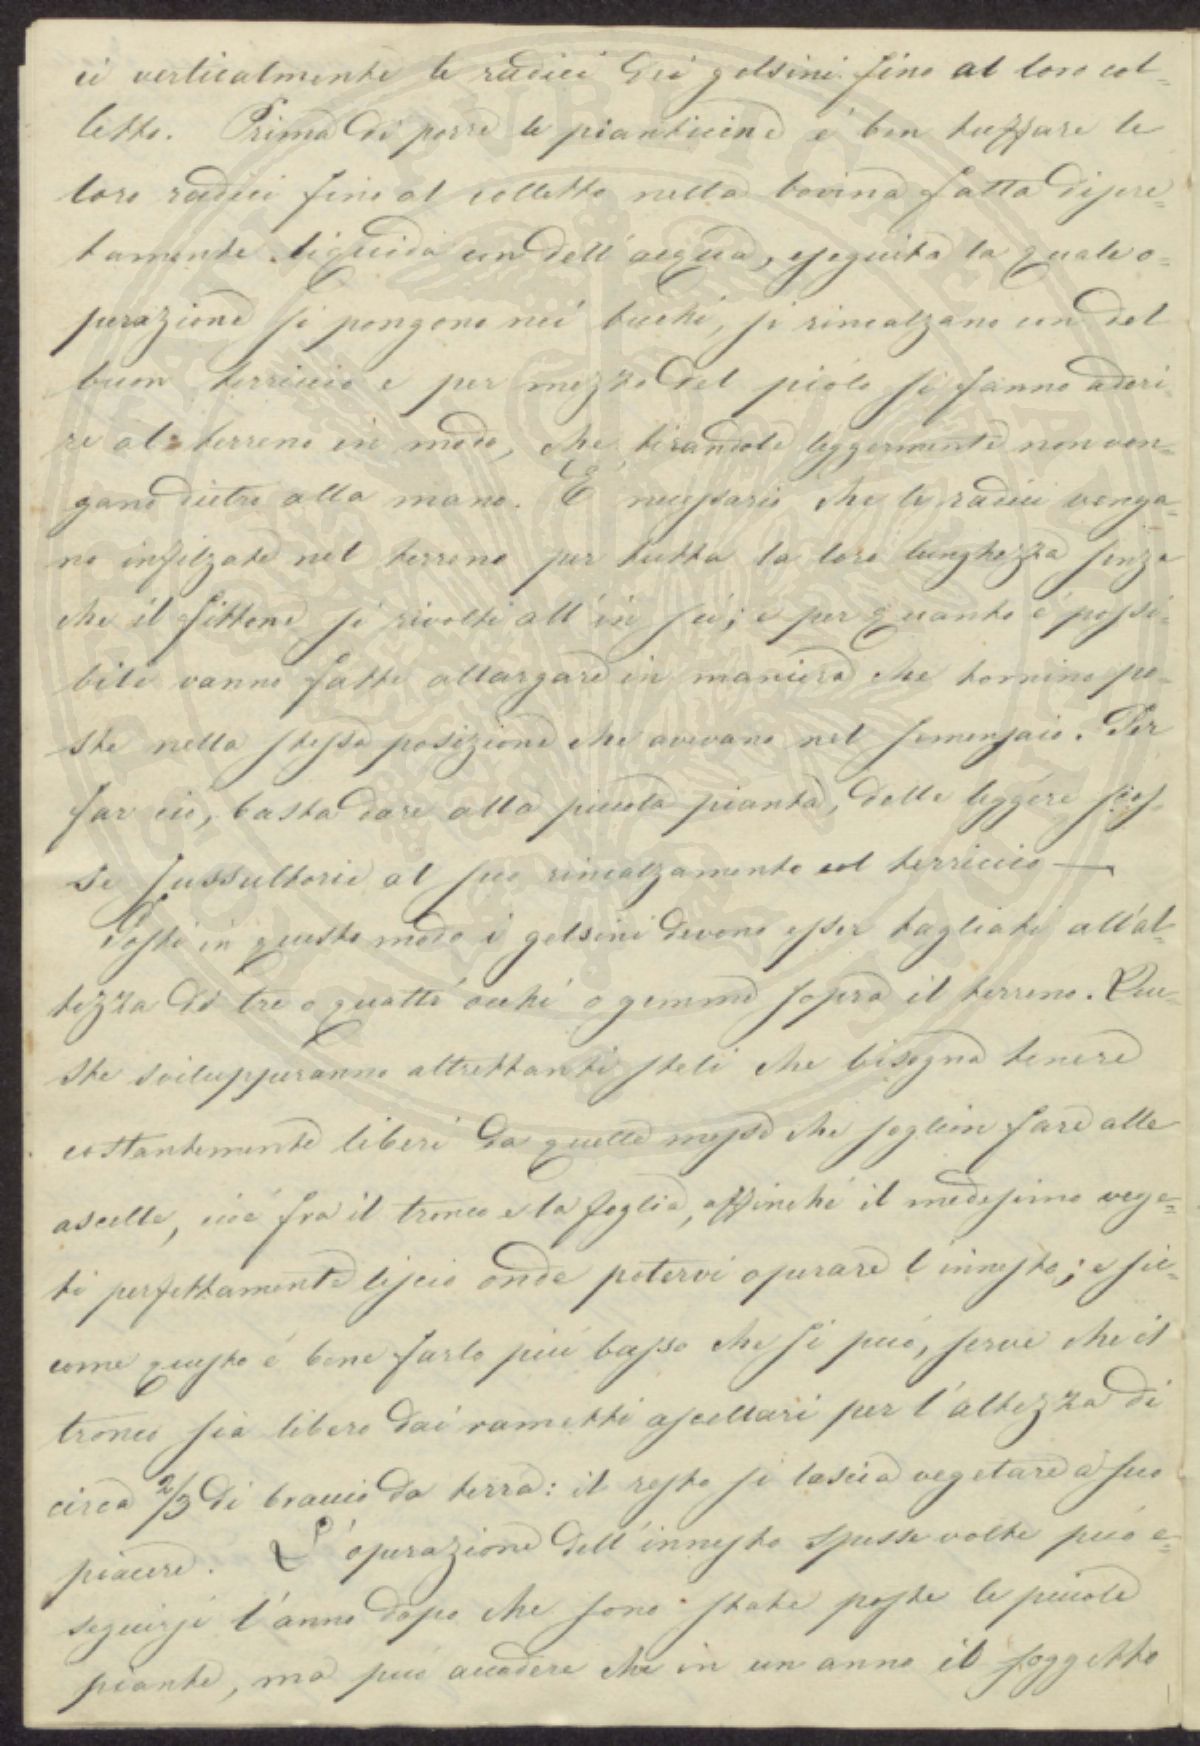 ci verticalmente le radici dei gelsini fino al loro col=
letto. Prima di porre le pianticine è ben tuffare le
loro radici fino al colletto nella bovina fatta discre=
tamente liquida con dell'acqua, eseguita la quale o=
perazione si pongono nei buchi, si rincalzano con del
buon terriccio e per mezzo del piolo si fanno aderi=
re al terreno in modo, che tirandole leggermente non ven=
gano dietro alla mano. È necessario che le radici venga=
no infilzate nel terreno per tutta la loro lunghezza senza
che il fittone si rivolti all'in su; e per quanto è possi=
bile vanno fatte allargare in maniera che tornino po=
ste nella stessa posizione che avevano nel semenzaio. Per
far ciò, basta dare alla piccola pianta, delle leggere scos=
se sussultorie al suo rincalzamento col terriccio —
Posti in questo modo i gelsini devono esser tagliati all'al=
tezza di tre o quattr'occhi o gemme sopra il terreno. Que=
ste svilupperanno altrettanti steli che bisogna tenere
costantemente liberi da quelle messe che soglion fare alle
ascelle, cioè fra il tronco e la foglia, affinché il medesimo vege=
ti perfettamente liscio onde potervi operare l'innesto; e sic=
come questo è bene farlo più basso che si può, serve che il
tronco sia libero dai rametti ascellari per l'altezza di
circa 2/3 di braccio da terra: il resto si lascia vegetare a suo
piacere. L'operazione dell'innesto spesse volte può e=
seguirsi l'anno dopo che sono state poste le piccole
piante, ma può accadere che in un anno il soggetto